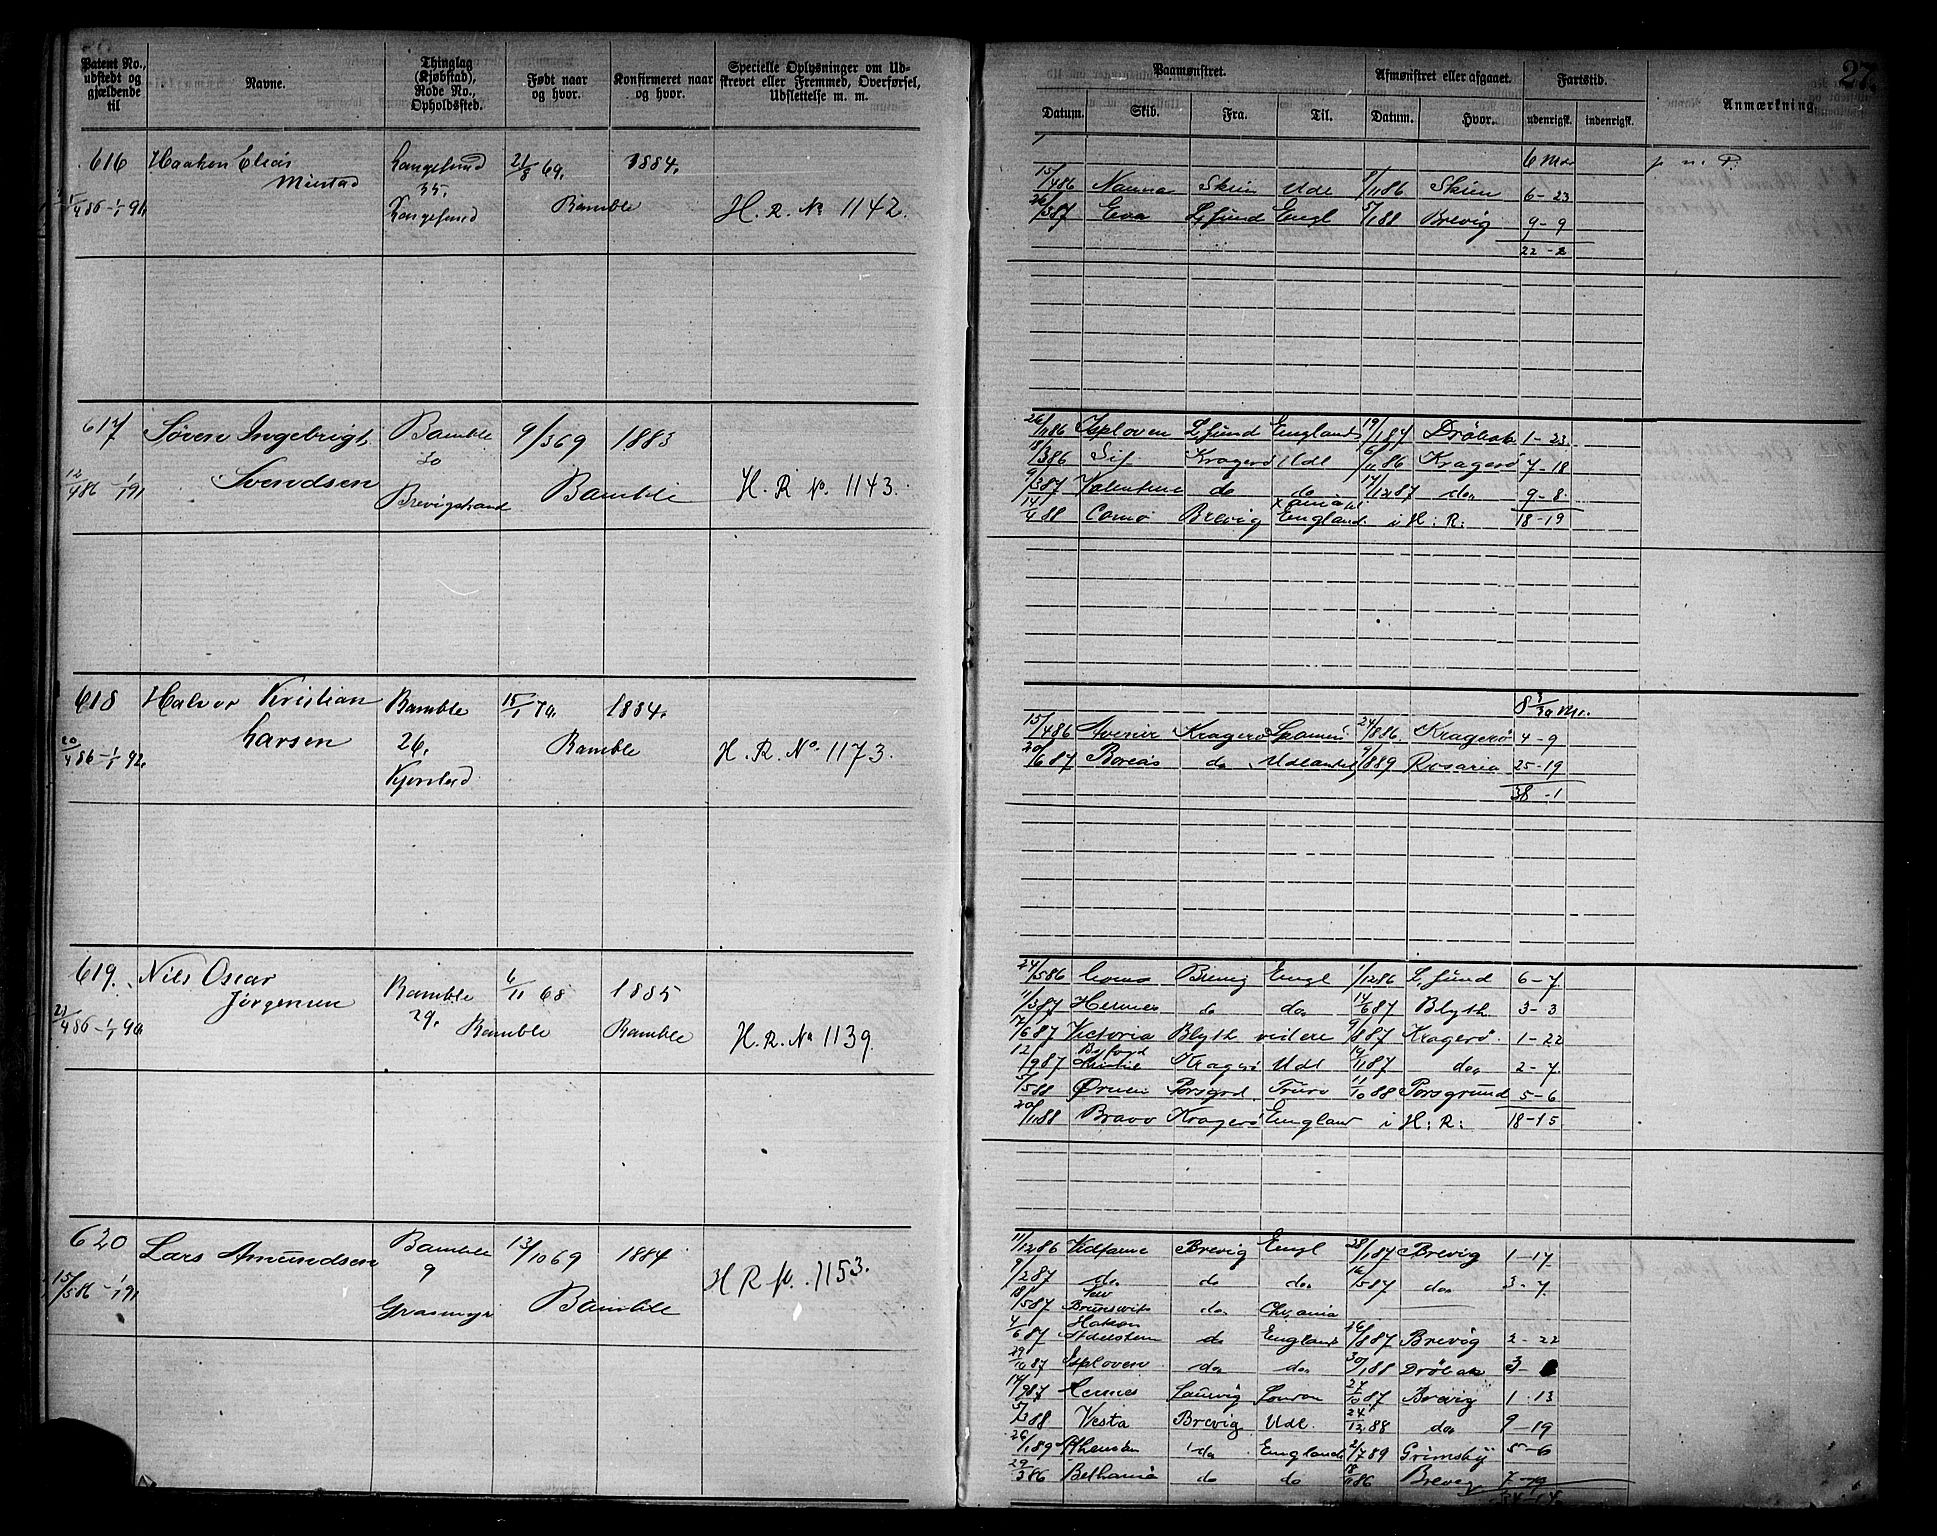 Patent No., udstedt og gjældende til
Navne.
Thinglag (Kjøbstad), Rode No., Opholdssted.
Født naar og hvor.
Konfirmeret naar og hvor.
Specielle Oplysninger om Udskrevet eller Fremmed, Overførsel, Udslettelse m. m.
Paamønstret.
Afmønstret eller afgaaet.
Fartstid.
Anmærkning.
27.
Datum. Skib. Fra. Til. Datum. Hvor. udenrigsk. indenrigsk.
616 Haakon Elias Langesund 21/8 69. 1884.
35.
Langesund Bamble H. R. No 1142.
6 Mdr p. n. P.
15/4 86 Nanna Skien Udl 8/11 86 Skien 6-23
26/3 87 Eva L,sund Engl 5/1 88 Brevig 9-9
22-2
617 Søren Ingebrigt Bamble 9/3 69 1883
Svendsen
12/4 86 - 1/1 91 Brevigstrand Bamble H. R No. 1143.
26/11 86 Esploven L,sund England 19/1 87 Drøbak 1-23
18/3 86 Sif Kragerø Udl 6/11 86 Kragerø 7-18
9/3 87 Valentine do do 17/12 87 do 9-8
14/4 88 Como Brevig England i H: R: 18-19
618 Halvor Kristian Bamble 15/1 70. 1884.
Larsen 26. Bamble
20/4 86 - 1/1 92. H. R. No. 1173.
8 3/30 Mr.
15/4 86 Kragerø 24/8 86. Kragerø 4-9
20/6 87 Boreas do Udlandet 9/8 89 Rosario 25-19
38-1
619. Nils Oscar Bamble 6/11 68 1885
Jørgensen 29. Bamble Bamble
21/4 86 - 1/1 90 H. R. No 1139.
24/5 86 Como Brevig Engl 1/12 86 L,sund 6-7
11/3 87 Hermes do do 14/6 87 Blyth 3-3
17/6 87 Victoria Blyth videre 9/8 87 Kragerø. 1-22
12/9 87 Kragerø Udl 19/11 87 do 2-7
5/5 88 Ørnen Porsgrd Truro 11/10 88 Porsgrund 5-6
20/11 88 Bravo Kragerø England i H: R: 18-15
620 Lars Amundsen Bamble 13/10 69 1884
9
15/5 86 - 1/1 91 Grasmyr Bamble H R No. 1153.
11/12 86 Vidfarne Brevig Engl 28/1 87 Brevig 1-17
9/2 87 do do do 16/5 87 do 3-7
18/5 87 do Chr,ania
4/6 87 Hakon Adelsteen do England 26/8 87 Brevig 2-22
29/10 87 Esploven do do 30/1 88 Drøbak 3-
14/9 87 Hermes Laurvig London 27/10 87 Brevig 1-13
5/3 88 Vesta Brevig Udl. 24/12 88 do 9-19
26/1 89 do England 2/7 89 Grimsby 5-6
29/3 86 Bethania do do 18/11 86 Brevig